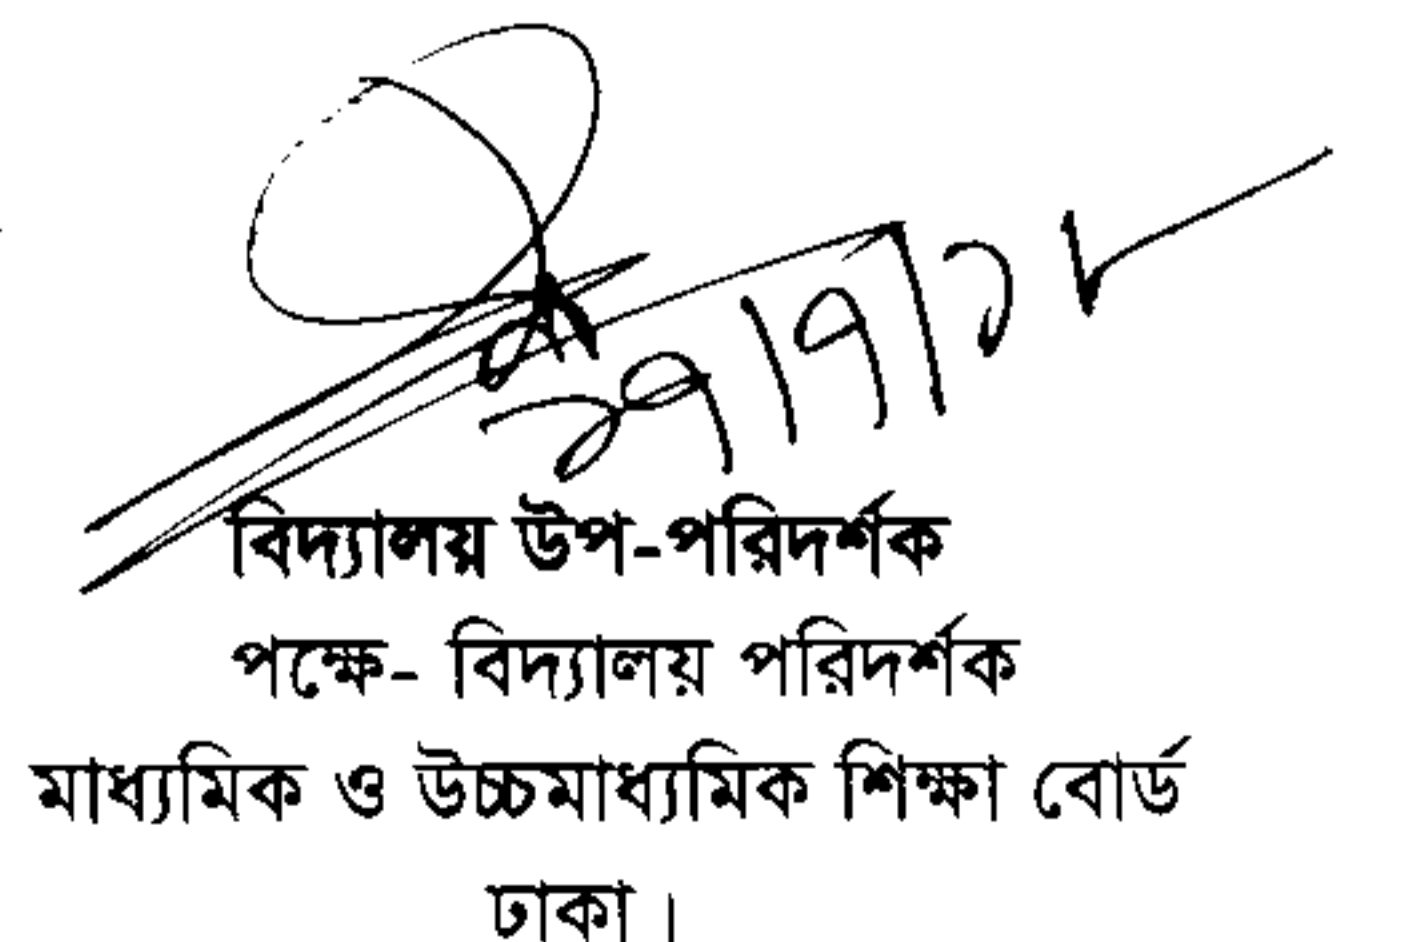 ২৭/৭/১৮
বিদ্যালয় উপ-পরিদর্শক
পক্ষে- বিদ্যালয় পরিদর্শক
মাধ্যমিক ও উচ্চমাধ্যমিক শিক্ষা বোর্ড
ঢাকা।